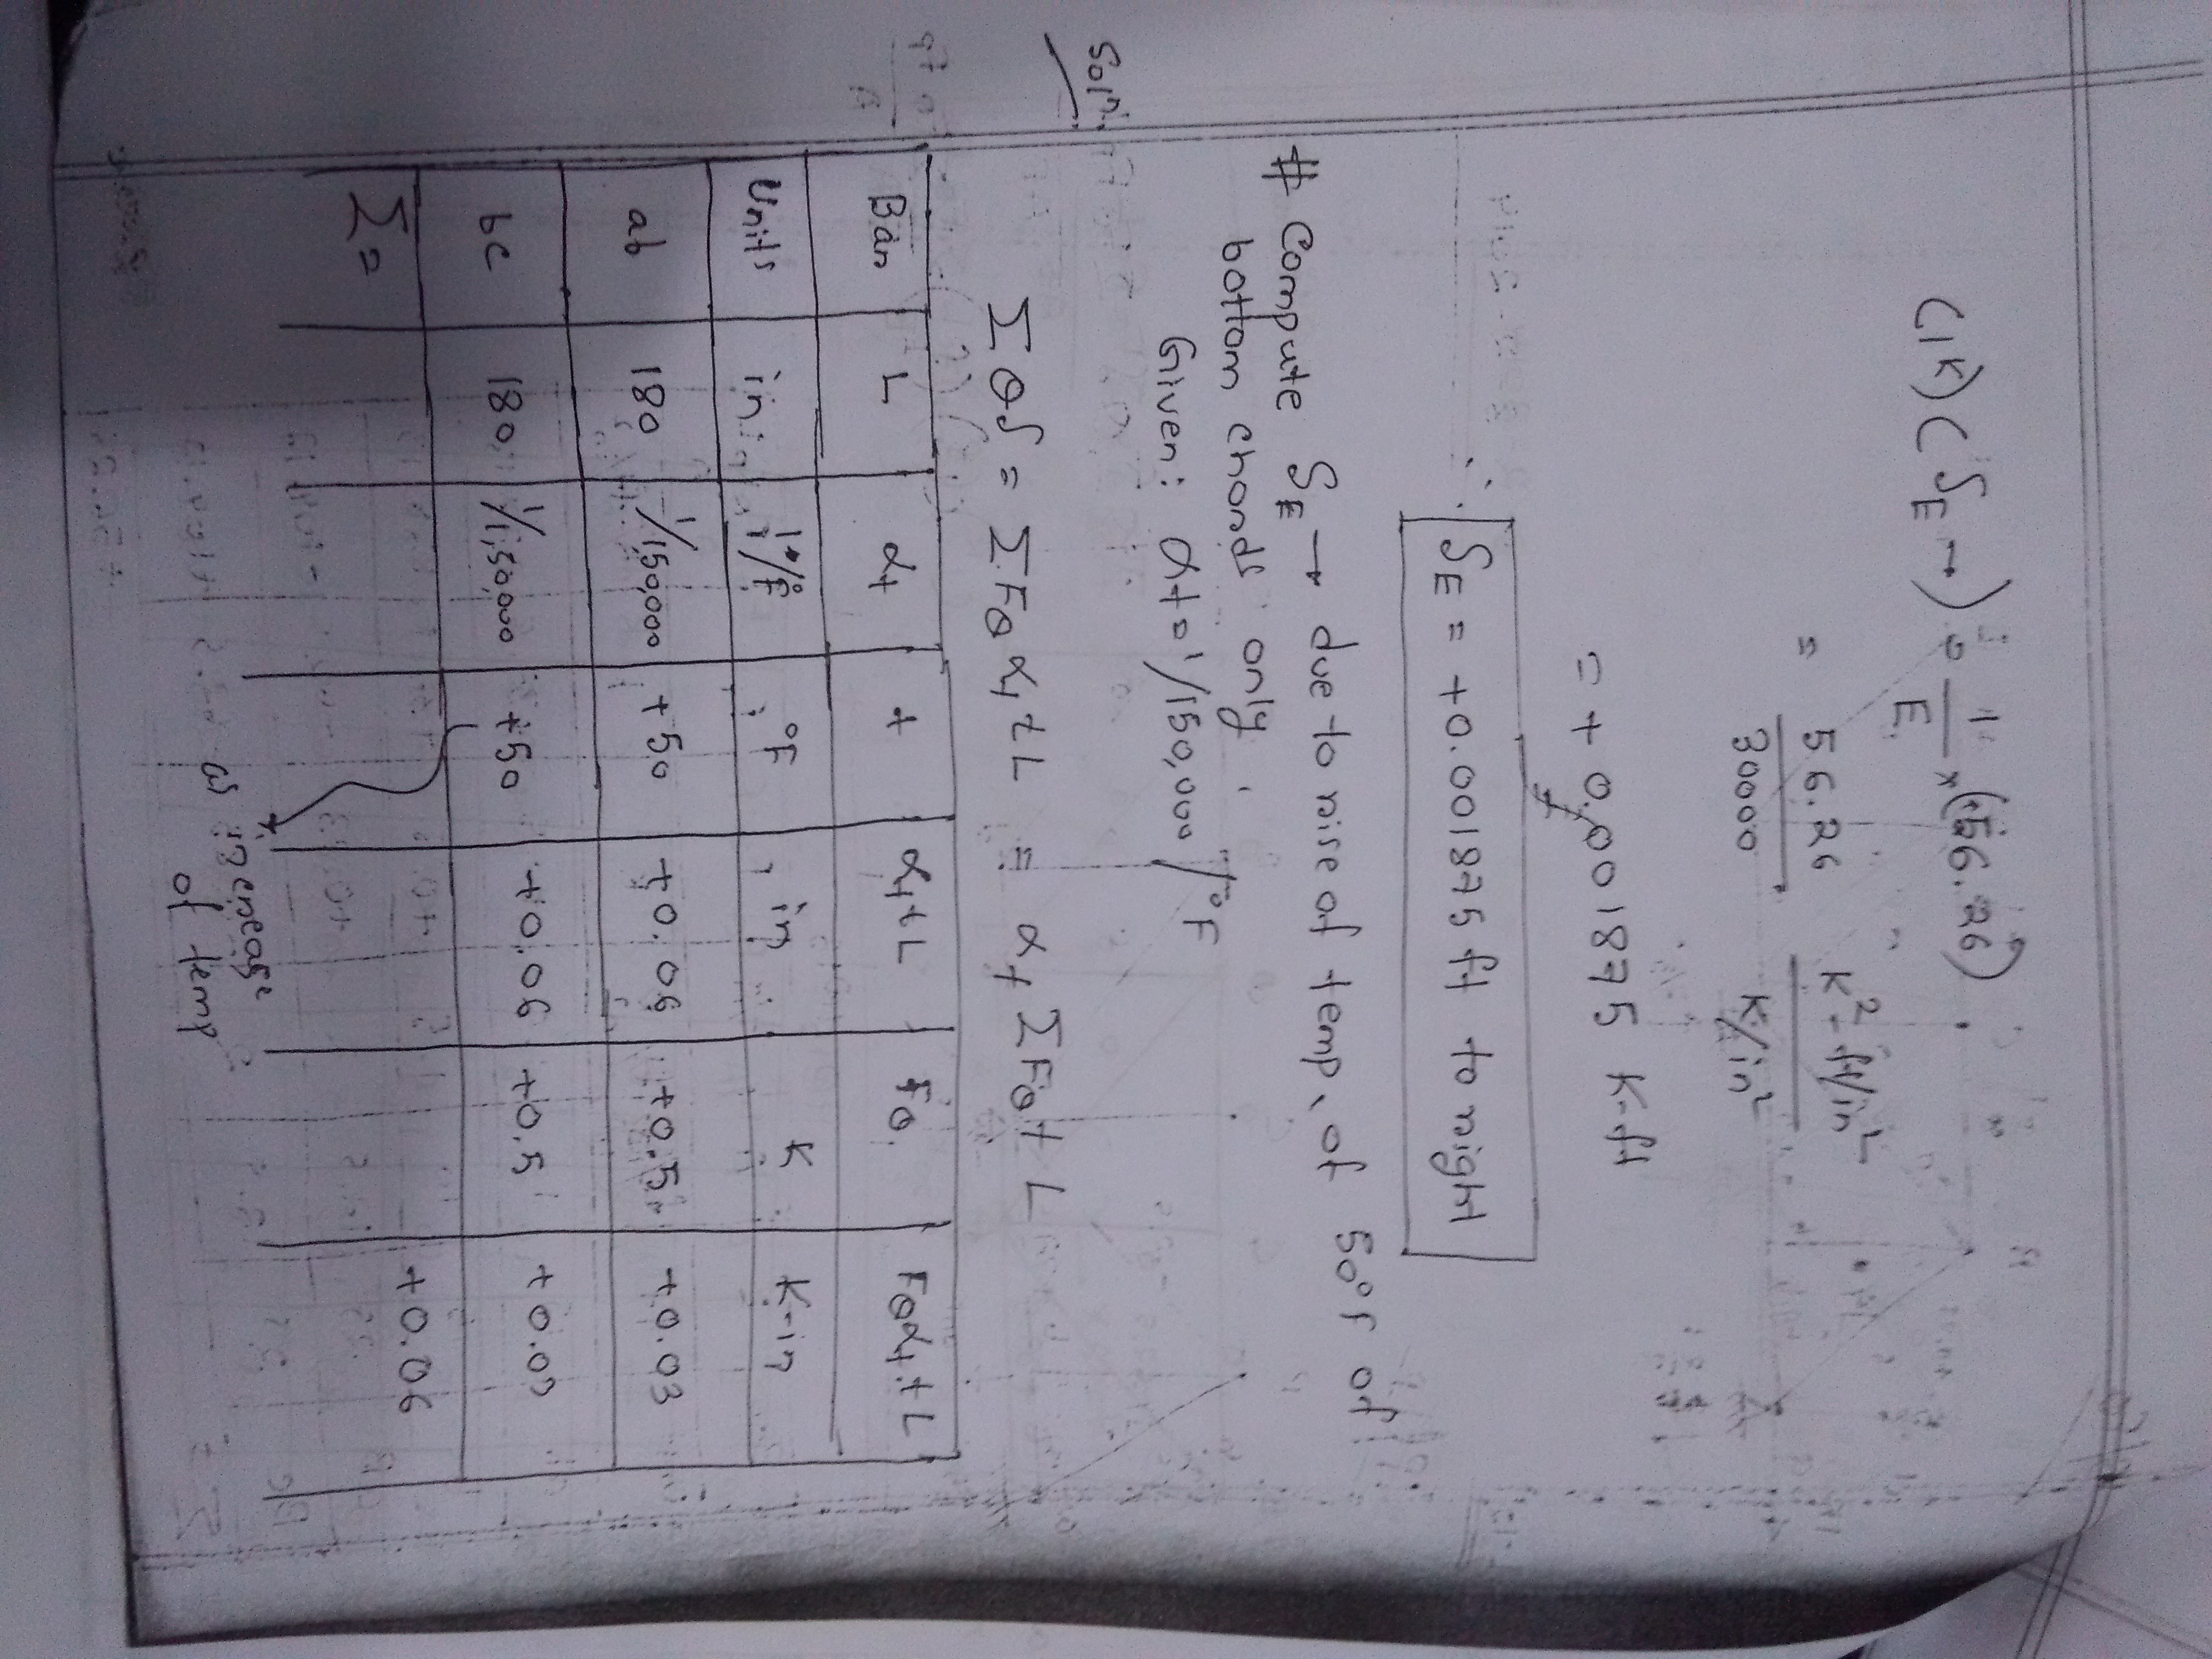 (1K)(δE→) = 1/E × (+56.26)
= 56.26/30000 K²-ft/in² / K/in²
= +0.001875 K-ft
∴ δE = +0.001875 ft to right
# Compute δE → due to rise of temp. of 50°F of
bottom chords only.
Given: αt = 1/150,000 /°F
Soln:
ΣQδ = ΣFQ αt t L = αt ΣFQ t L
Bar L αt t αt t L FQ FQ αt t L
Units in 1/°F °F in K K-in
ab 180 1/150,000 +50 +0.06 +0.5 +0.03
bc 180 1/1,50,000 +50 +0.06 +0.5 +0.03
Σ = +0.06
as increase
of temp